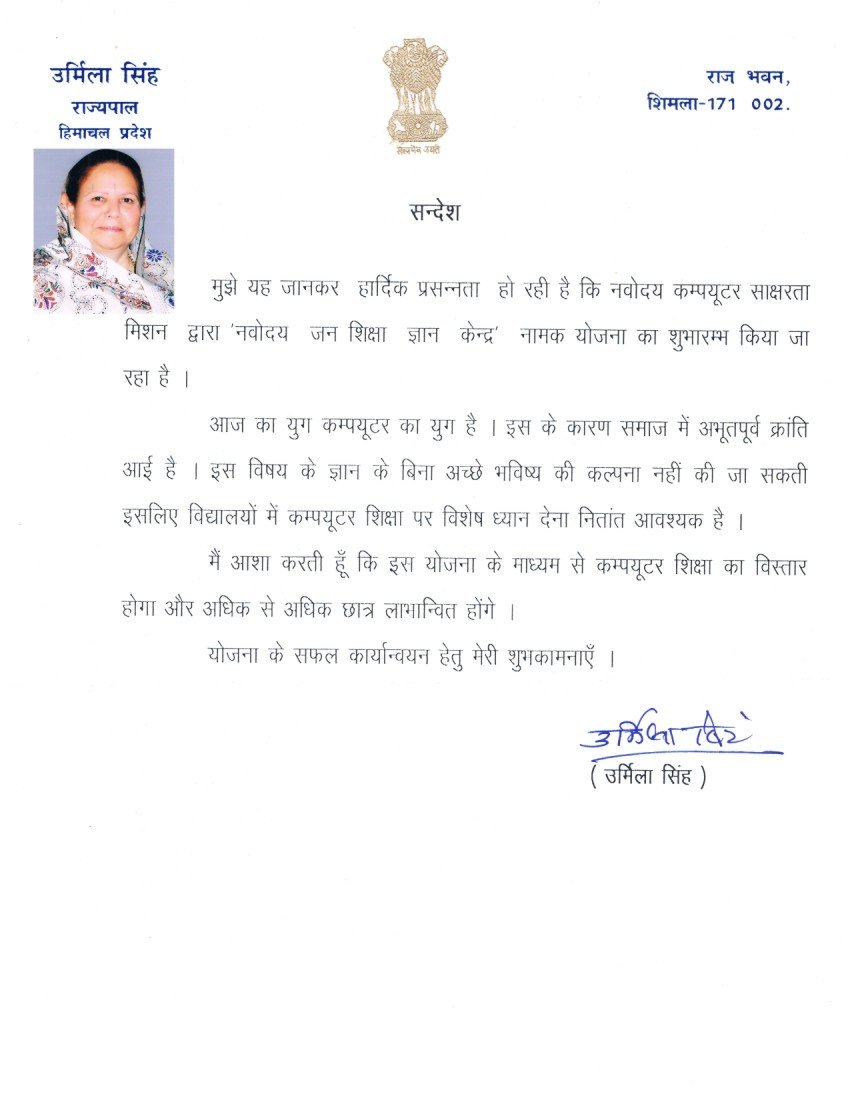 उर्मिला सिंह
राज्यपाल
हिमाचल प्रदेश
सत्यमेव जयते
राज भवन,
शिमला-171 002.
सन्देश
मुझे यह जानकर हार्दिक प्रसन्नता हो रही है कि नवोदय कम्पयूटर साक्षरता
मिशन द्वारा 'नवोदय जन शिक्षा ज्ञान केन्द्र' नामक योजना का शुभारम्भ किया जा
रहा है ।
आज का युग कम्पयूटर का युग है । इस के कारण समाज में अभूतपूर्व क्रांति
आई है । इस विषय के ज्ञान के बिना अच्छे भविष्य की कल्पना नहीं की जा सकती
इसलिए विद्यालयों में कम्पयूटर शिक्षा पर विशेष ध्यान देना नितांत आवश्यक है ।
मैं आशा करती हूँ कि इस योजना के माध्यम से कम्पयूटर शिक्षा का विस्तार
होगा और अधिक से अधिक छात्र लाभान्वित होंगे ।
योजना के सफल कार्यान्वयन हेतु मेरी शुभकामनाएँ ।
उर्मिला सिंह
( उर्मिला सिंह )